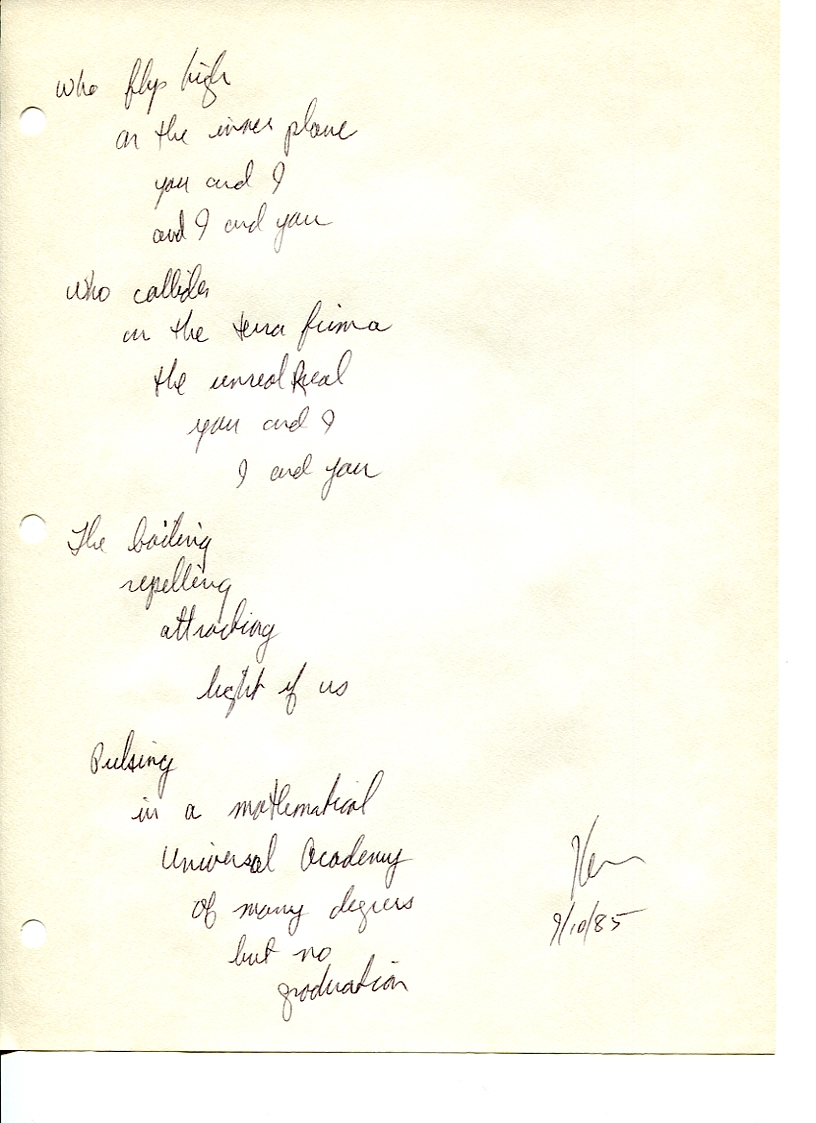 Who flys high
on the inner plane
you and I
and I and you
Who collides
on the terra firma
the unreal Real
you and I
I and you
The boiling
repelling
attracting
light of us
Pulsing
in a mathematical
Universal Academy
Of many degrees
but no
graduation
Ken
9/10/85